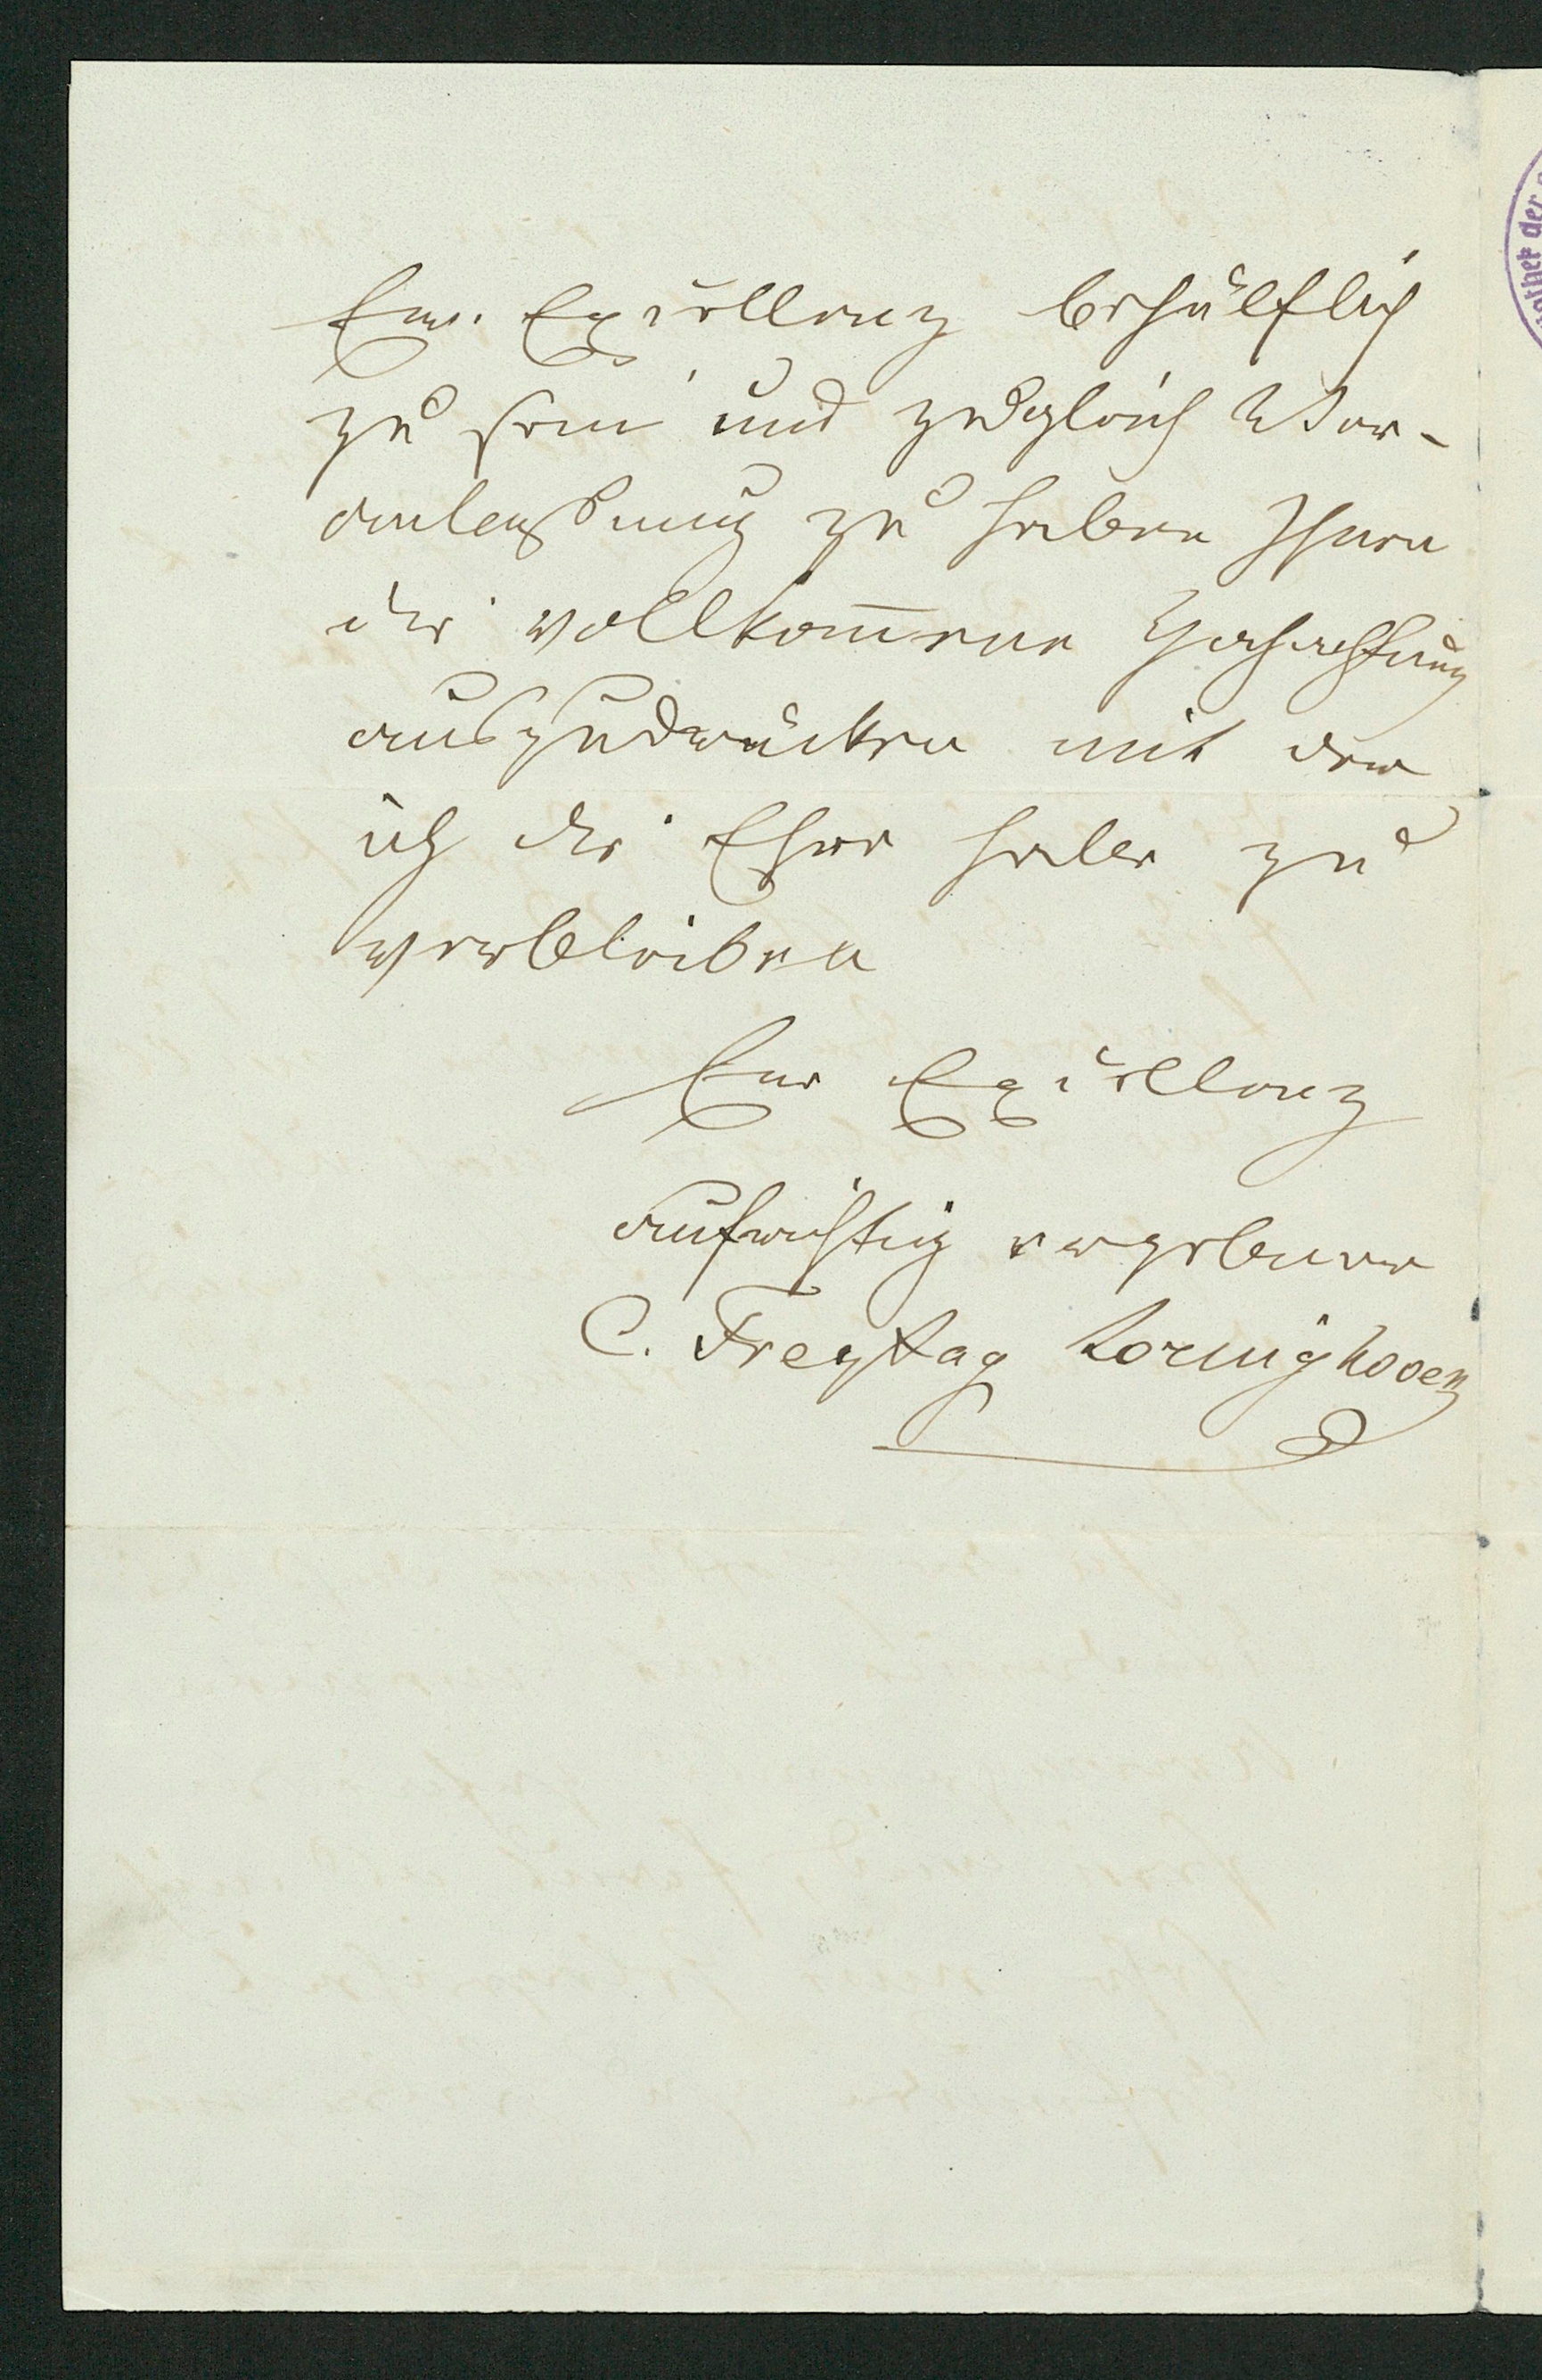 Ew. Excellenz behülflich
zu sein und zugleich Ver-
anlaßung zu haben Ihnen
die vollkom̅ene Hochachtung
auszudrücken mit der
ich die Ehre habe zu
verbleiben
Ew Excellenz
aufrichtig ergebener
C. Freytag Loringhoven